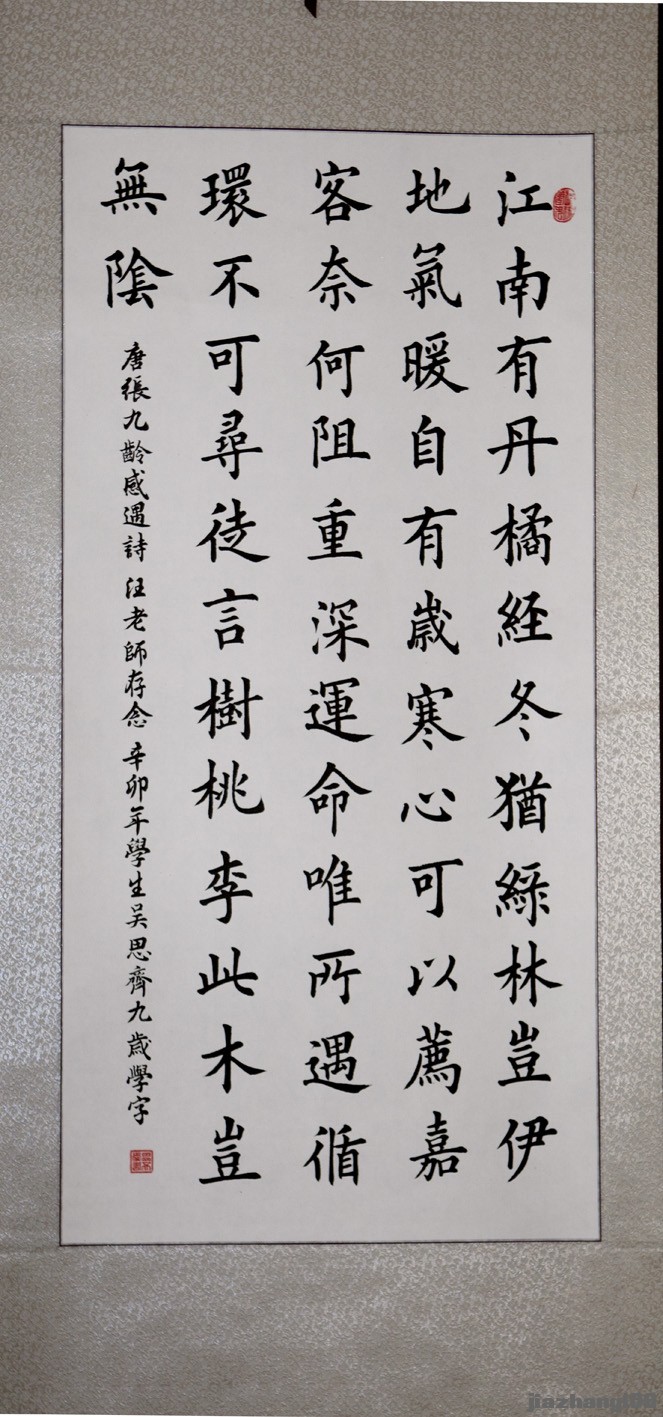 江南有丹橘経冬猶綠林豈伊
地氣暖自有歲寒心可以薦嘉
客奈何阻重深運命唯所遇循
環不可尋徒言樹桃李此木豈
無陰
唐張九齡感遇詩 汪老師存念 辛卯年學生吴思齊九歲學字